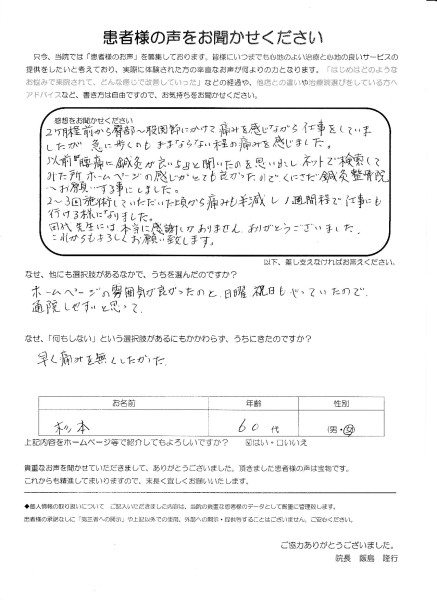 患者様の声をお聞かせください
只今、当院では「患者様のお声」を募集しております。皆様にいつまでも心地のよい治療と心地の良いサービスの
提供をしたいと考えており、実際に体験された方の率直なお声が何よりの力となります。「はじめはどのような
お悩みで来院されて、どんな感じで改善していった」などの経過や、他店との違いや治療院選びをしている方へ
アドバイスなど、書き方は自由ですので、お気持ちをお聞かせください。
感想をお聞かせください
2か月程前から臀部〜股関節にかけて痛みを感じながら仕事をしていま
したが 急に歩くのもままならない程の痛みを感じました。
以前"腰痛に鍼灸が良いよ"と聞いたのを思い出し ネットで検索して
みた所 ホームページの感じがとても良かったので くにさだ鍼灸整骨院
へお願いする事にしました。
2〜3回施術していただいた頃から痛みも半減し 1週間程で仕事にも
行ける様になりました。
先生には 本当に感謝しかありません。ありがとうございました。
これからもよろしくお願い致します。
以下、差し支えなければお答えください。
なぜ、他にも選択肢があるなかで、うちを選んだのですか？
ホームページの雰囲気が良かったのと、日曜 祝日もやっていたので、
通院しやすいと思って、
なぜ、「何もしない」という選択肢があるにもかかわらず、うちにきたのですか？
早く痛みを無くしたかった
お名前 年齢 性別
杉本 60代 (男・女)
上記内容をホームページ等で紹介してもよろしいですか？ ☑はい・□いいえ
貴重なお声を聞かせていただきまして、ありがとうございました。頂きました患者様の声は宝物です。
これからも精進してまいりますので、末長く宜しくお願いいたします。
◆個人情報の取り扱いについて ご記入いただきました内容は、当院の貴重な患者様のデータとして厳重に管理致します。
患者様の承諾なしに「第三者への開示」や上記以外での使用、外部への開示・提供等することはございません。ご安心ください。
ご協力ありがとうございました。
院長 飯島 隆行